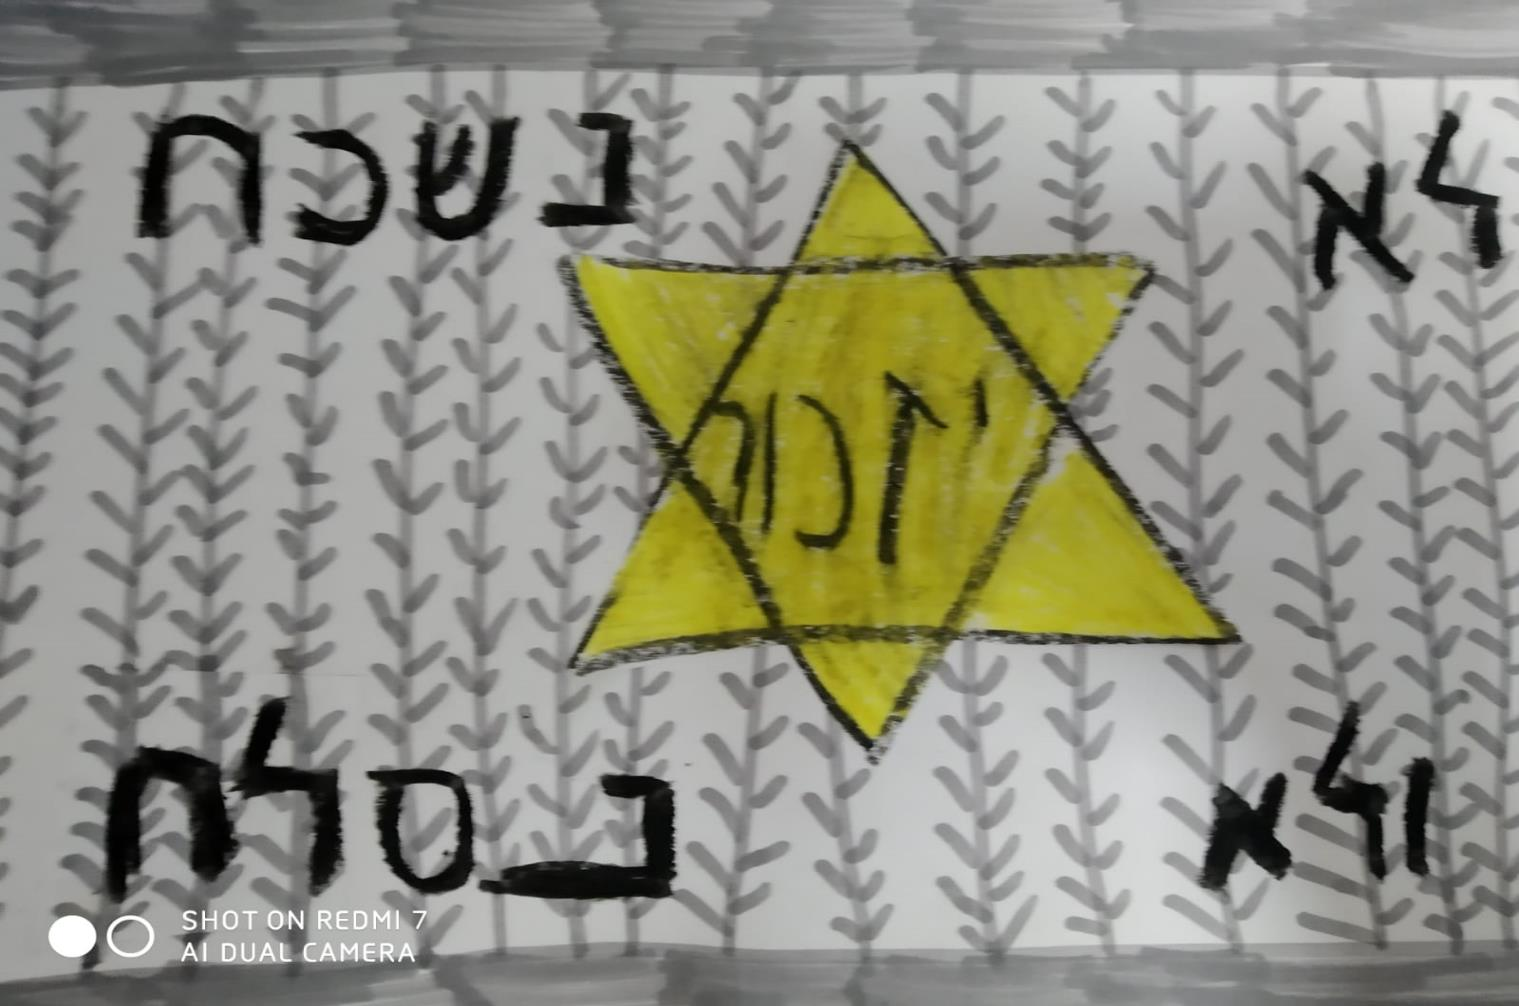 לא נשכח
יזכור
ולא נסלח
SHOT ON REDMI 7
AI DUAL CAMERA